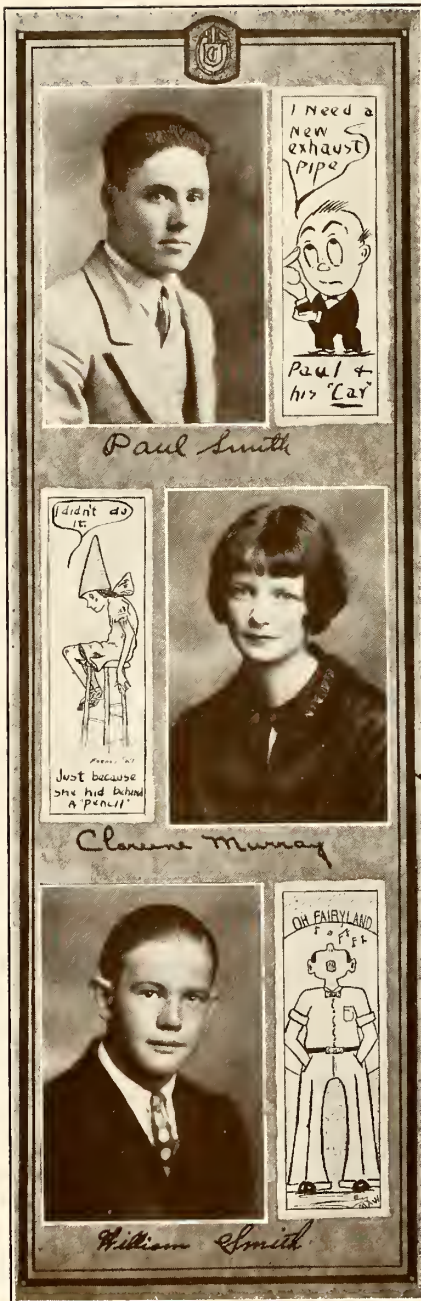 I Need a
New
exhaust
pipe
Paul &
his "Car"
Paul Smith
I didn't do
it.
Just because
she hid behind
A "pencil"
Clareene Murray
OH FAIRYLAND
William Smith